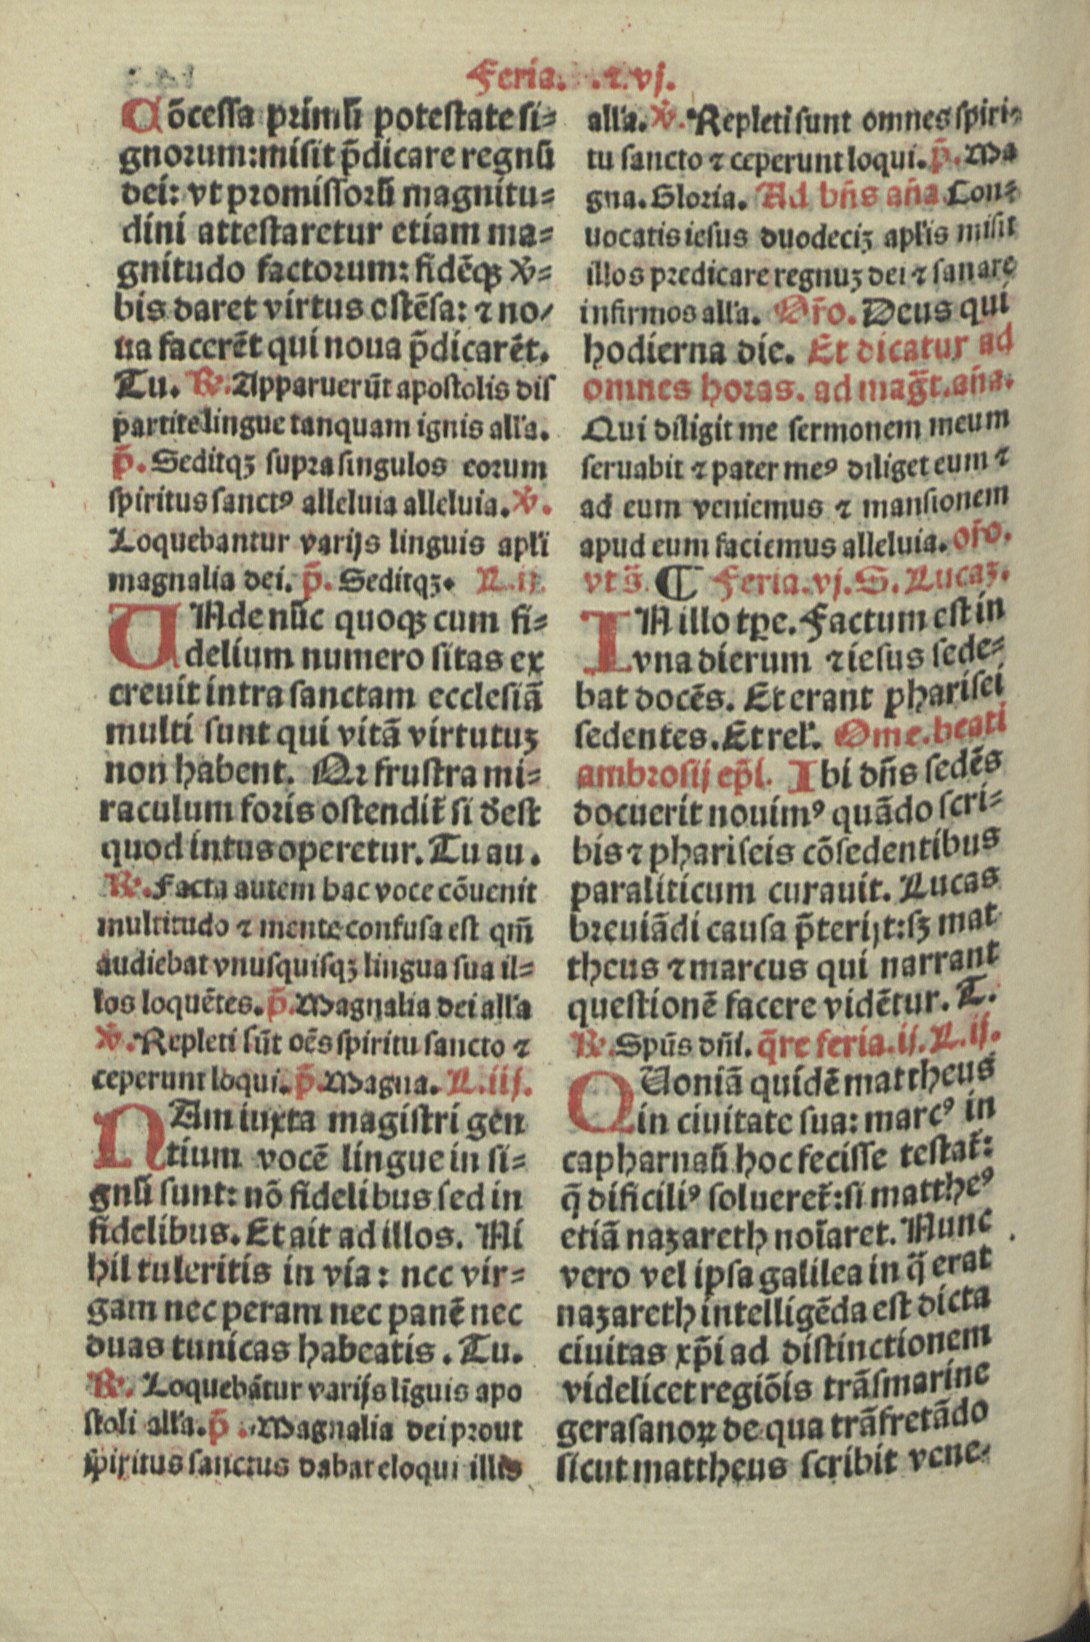 Feria. .⁊.vj.
Cōcessa primū potestate si-
gnorum: misit p̄dicare regnū
dei: vt promissorū magnitu-
dini attestaretur etiam ma-
gnitudo factorum: fidēqꝫ v̄-
bis daret virtus ostēsa: ⁊ no/
ua facerēt qui noua p̄dicarēt.
Tu. ℟. Apparuerūt apostolis dis
partite lingue tanquam ignis all'a.
p̄. Seditqꝫ supra singulos eorum
spiritus sanctꝰ alleluia alleluia. ℣.
Loquebantur varijs linguis apl'i
magnalia dei. p̄. Seditqꝫ. L.ij.
UNde nūc quoqꝫ cum fi-
delium numero sitas ex
creuit intra sanctam ecclesiā
multi sunt qui vitā virtutuꝫ
non habent. Qꝛ frustra mi-
raculum foris ostendit̄ si deest
quod intus operetur. Tu au.
℟. Facta autem hac voce cōuenit
multitudo ⁊ mente confusa est qm̄
audiebat vnusquisqꝫ lingua sua il-
los loquētes. p̄. Magnalia dei all'a
℣. Repleti sūt oēs spiritu sancto ⁊
ceperunt loqui. p̄. Magna. L.iij.
NAm iuxta magistri gen
tium vocē lingue in si-
gnū sunt: nō fidelibus sed in
fidelibus. Et ait ad illos. Ni
hil tuleritis in via: nec vir-
gam nec peram nec panē nec
duas tunicas habeatis. Tu.
℟. Loquebātur varijs līguis apo
stoli all'a. p̄. Magnalia dei prout
spiritus sanctus dabat eloqui illis
all'a. ℣. Repleti sunt omnes spiri-
tu sancto ⁊ ceperunt loqui. p̄. Ma
gna. Gloria. Ad bn̄s an̄a Con-
uocatis iesus duodeciꝫ apl'is misit
illos predicare regnuꝫ dei ⁊ sanare
infirmos all'a. Or̄o. Deus qui
hodierna die. Et dicatur ad
omnes horas. ad maḡt. an̄a.
Qui diligit me sermonem meum
seruabit ⁊ pater meꝰ diliget eum ⁊
ad eum veniemus ⁊ mansionem
apud eum faciemus alleluia. or̄o.
vt s̄. ¶ Feria.vj. S. Lucaꝫ.
IN illo tp̄e. Factum est in
vna dierum ⁊ iesus sede-
bat docēs. Et erant pharisei
sedentes. Et rel'. Ome. beati
ambrosij ep̄i. Ibi dn̄s sedēs
docuerit nouimꝰ quādo scri-
bis ⁊ phariseis cōsedentibus
paraliticum curauit. Lucas
breuiādi causa p̄terijt: sꝫ mat
theus ⁊ marcus qui narrant
questionē facere vidētur. T.
℟. Spūs dn̄i. q̄re feria.ij. L.ij.
QUoniā quidē mattheus
in ciuitate sua: marcꝰ in
capharnaū hoc fecisse testat̄:
q̄ dificiliꝰ solueret̄: si mattheꝰ
etiā nazareth noīaret. Nunc
vero vel ipsa galilea in q̄ erat
nazareth intelligēda est dicta
ciuitas xp̄i ad distinctionem
videlicet regiōis trāsmarine
gerasanoꝝ de qua trāfretādo
sicut mattheus scribit vene-